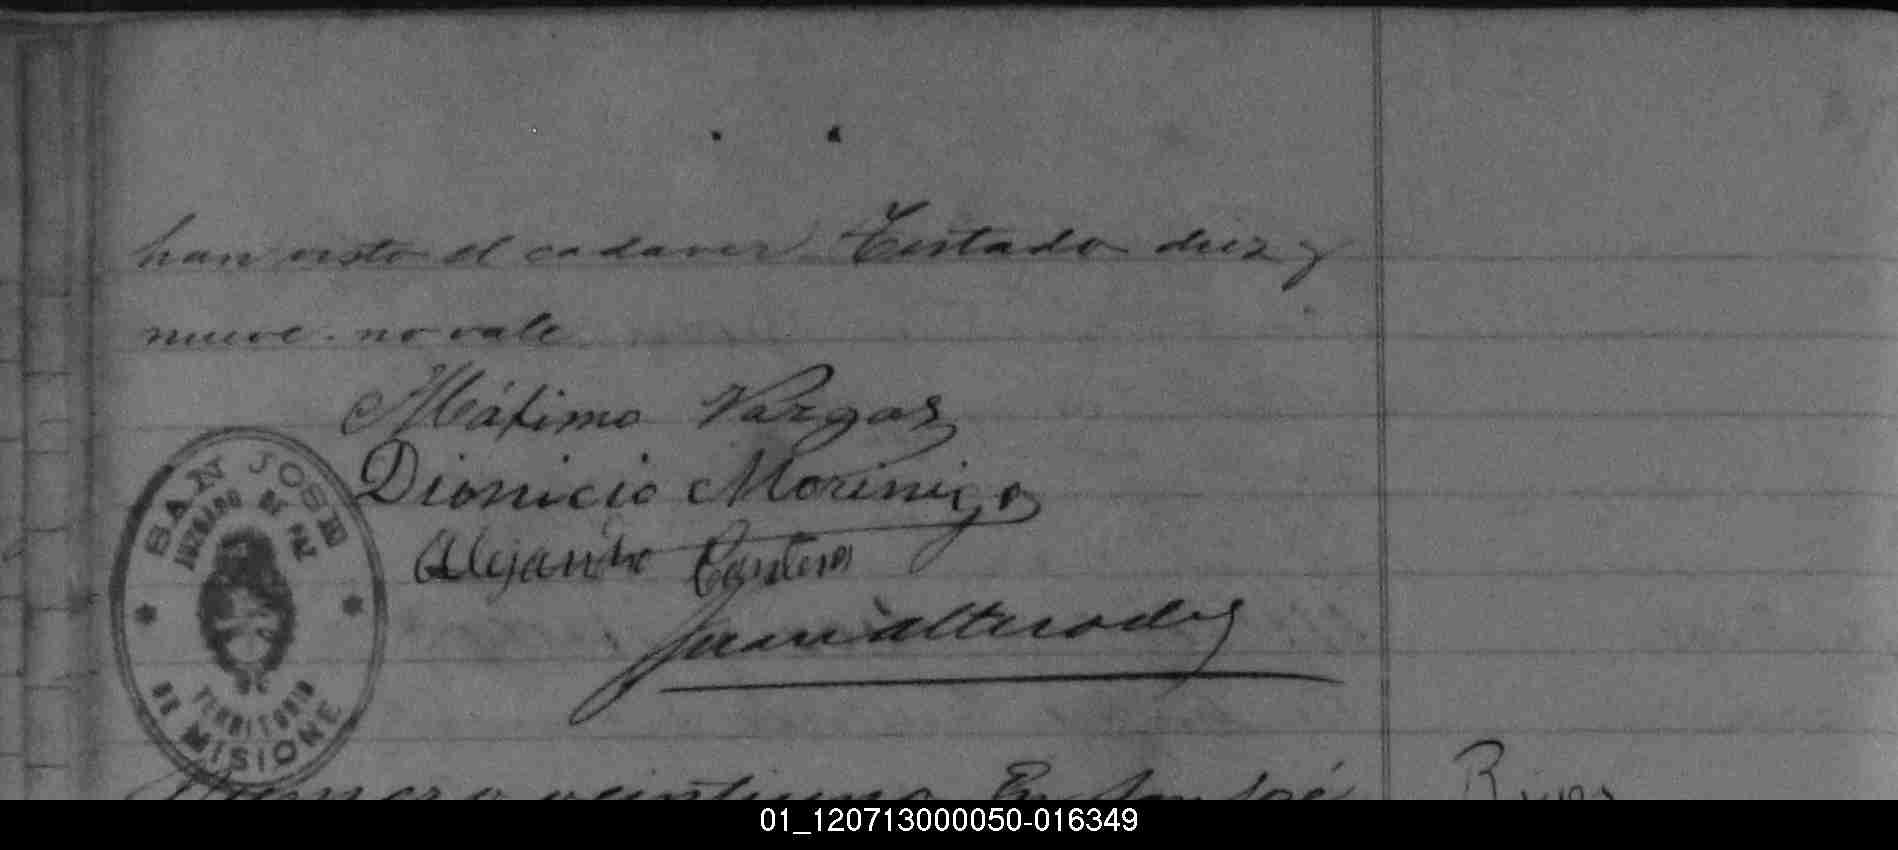 han visto el cadaver Testado diez y
nueve. no vale
Máximo Vargas
Dionicio Morinigo
Alejandro
Juan
SAN JOSE
JUZGADO DE PAZ
TERRITORIO
DE MISIONE
Numero veintiuno En San José
01_120713000050-016349